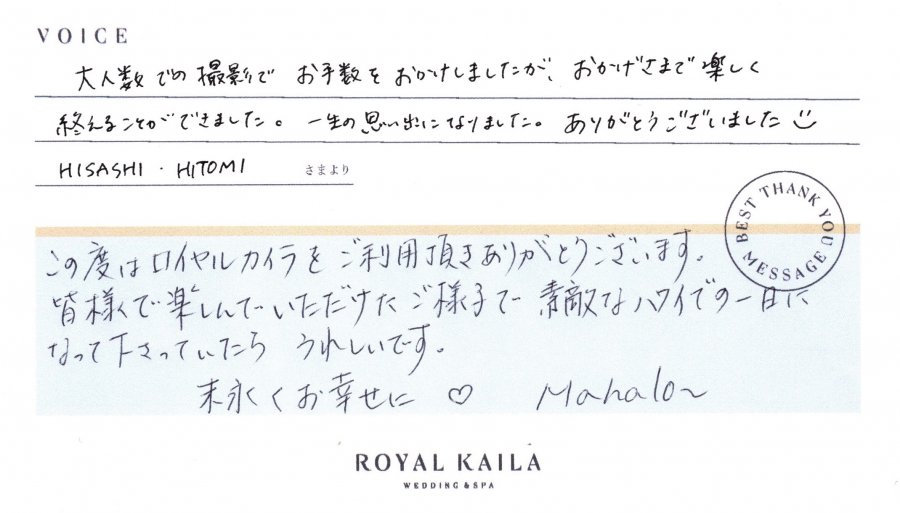 VOICE
大人数での撮影で お手数をおかけしましたが、おかげさまで楽しく
終えることができました。 一生の思い出になりました。 ありがとうございました
HISASHI ・ HITOMI さまより
BEST THANK YOU MESSAGE
この度はロイヤルカイラをご利用頂きありがとうございます。
皆様で楽しんでいただけたご様子で 素敵なハワイでの一日に
なって下さっていたら うれしいです。
末永くお幸せに ♡ Mahalo~
ROYAL KAILA
WEDDING & SPA